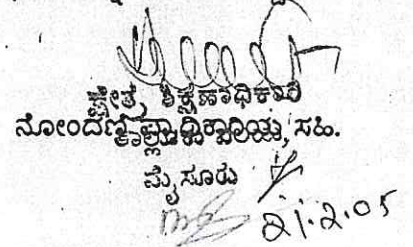 ಕ್ಷೇತ್ರ ಶಿಕ್ಷಣಾಧಿಕಾರಿ
ನೋಂದಣಿ ಪ್ರಾಧಿಕಾರಿಯ ಸಹಿ.
ಮೈಸೂರು
21.2.05